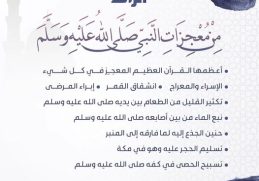 من معجزات النبي صلى الله عليه وسلم
• أعظمها القرآن العظيم المعجز في كل شيء
• الإسراء والمعراج • انشقاق القمر • إبراء المرضى
• تكثير القليل من الطعام بين يديه صلى الله عليه وسلم
• نبع الماء من بين أصابعه صلى الله عليه وسلم
• حنين الجذع إليه لما فارقه إلى المنبر
• تسليم الحجر عليه وهو في مكة
• تسبيح الحصى في كفه صلى الله عليه وسلم